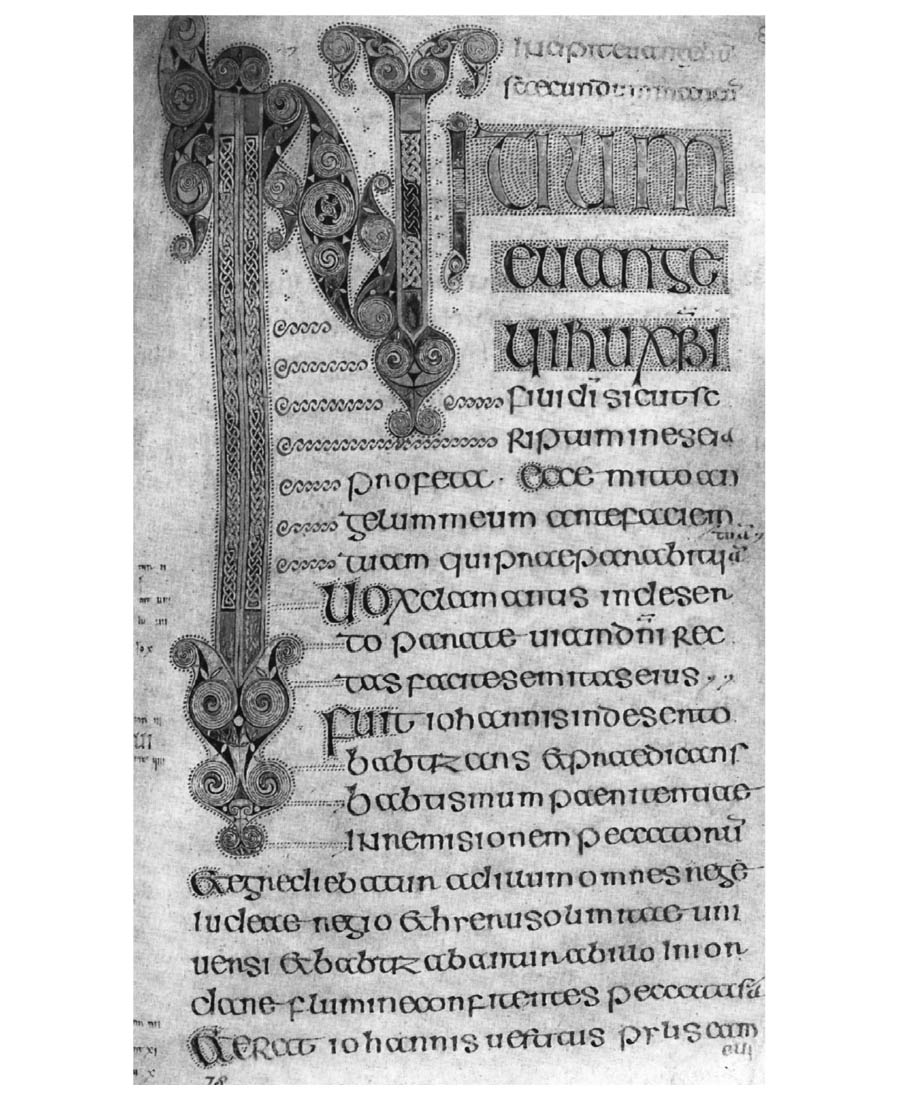 Incipit euangeliū
secundum
INITIUM
euange
lii ihu xp̄i
filii dī sicut sc
riptum in esaia
profeta · Ecce mitto an
gelum meum ante faciem
tuam qui praeparabit uiā
tuā
Uox clamantis in deser
to parate uiam dn̄i rec
tas facite semitas eius
fuit iohannis in deserto
babtizans & praedicans
babtismum paenitentiae
in remisionem peccatorū
&egrediebatur ad illum omnes
iudeae regio & hierusolimitae uni
uersi & babtizabantur ab illo in ior
dane flumine confitentes peccata suā
&erat iohannis uestitus pilis cam
eli